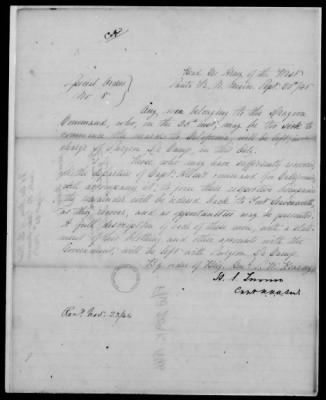 Head Qrs Army of the West
Santa Fe, N. Mexico, Sept. 20th /46
Special Orders
No 8
Any men belonging to the Dragoon
Command, who, on the 25th inst, may be too sick to
commence the march to California, will be left in
charge of Surgeon De Camp, in this city.
2d. Those, who may have sufficiently recover
for the departure of Capt. Allen's command for California,
will accompany it, to join their respective companies
The remainder will be ordered back to Fort Leavenworth,
as they recover, and as opportunities may be presented.
A full description of each of these men, with a state-
ment of his clothing and other accounts with the
Government, will be left with Surgeon De Camp.
By order of Brig. Gen. S. W. Kearny
H. S. Turner
Capt. A.A.A. Genl.
Recd Nov. 23/46